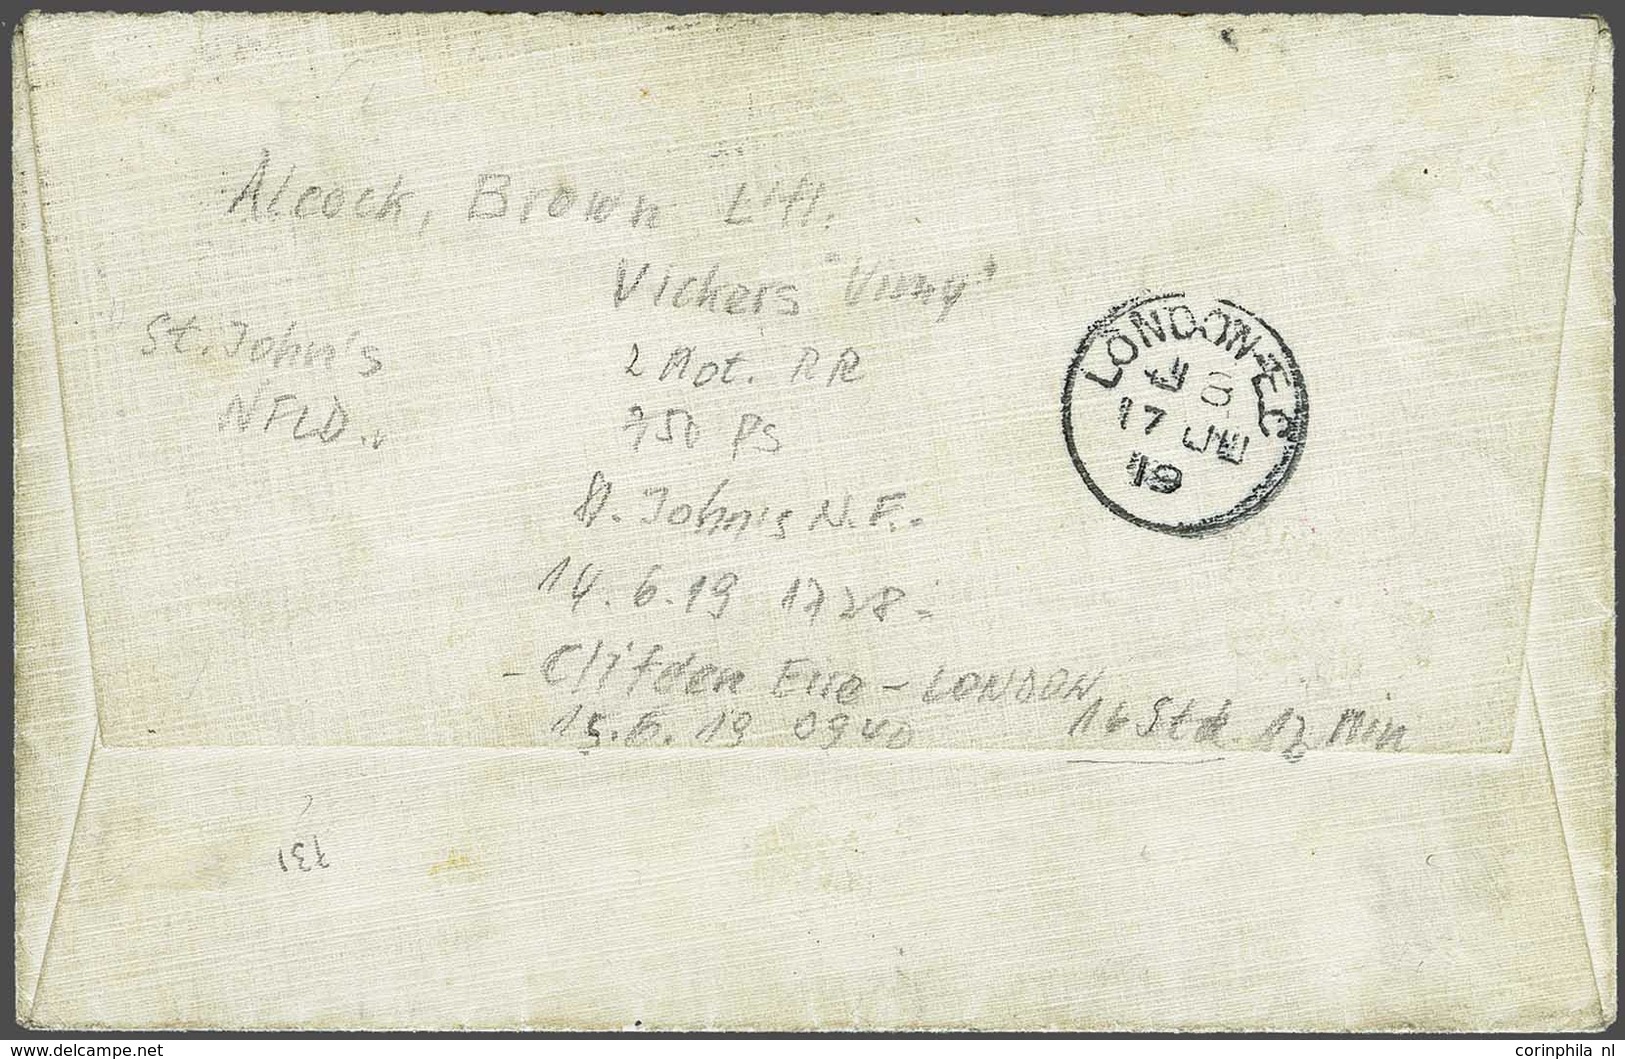 Alcock, Brown
Vickers "Vimy"
St. John's
NFLD.
2 Mot. RR
750 PS
St. John's N.F.
14.6.19 1728 -
- Clifden Eire - LONDON
15.6.19 0940 16 Std. 12 Min
LONDON·E.C
17 JE
19
731
corinphila nl